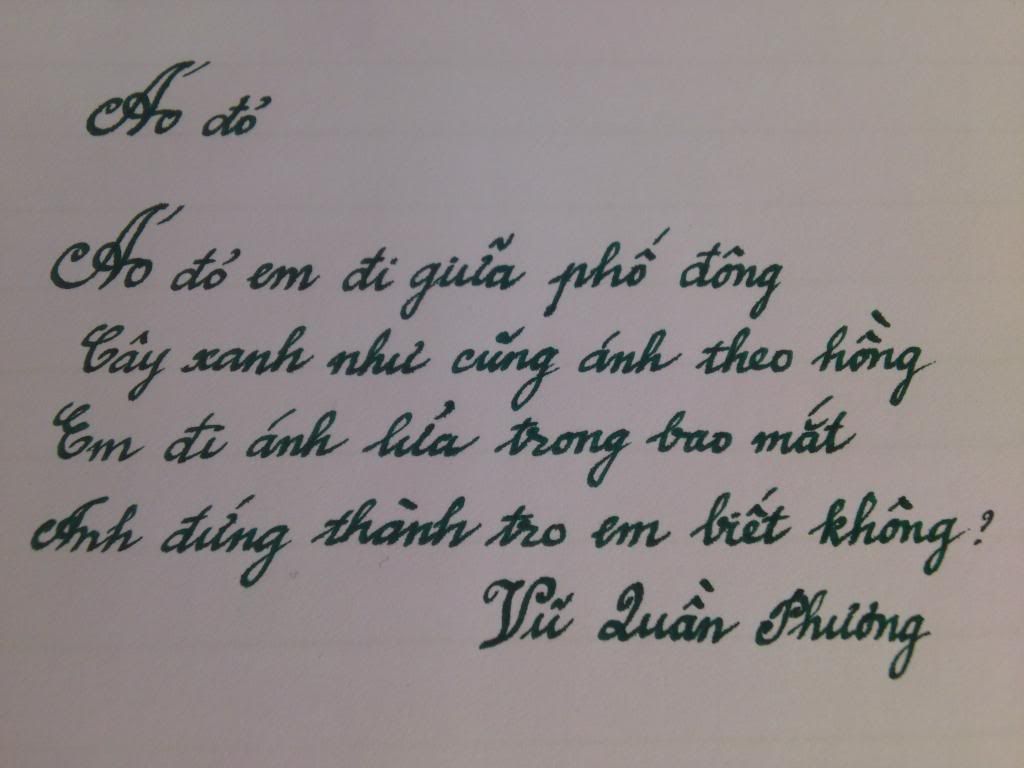 Áo đỏ
Áo đỏ em đi giữa phố đông
Cây xanh như cũng ánh theo hồng
Em đi ánh lửa trong bao mắt
Anh đứng thành tro em biết không?
Vũ Quần Phương